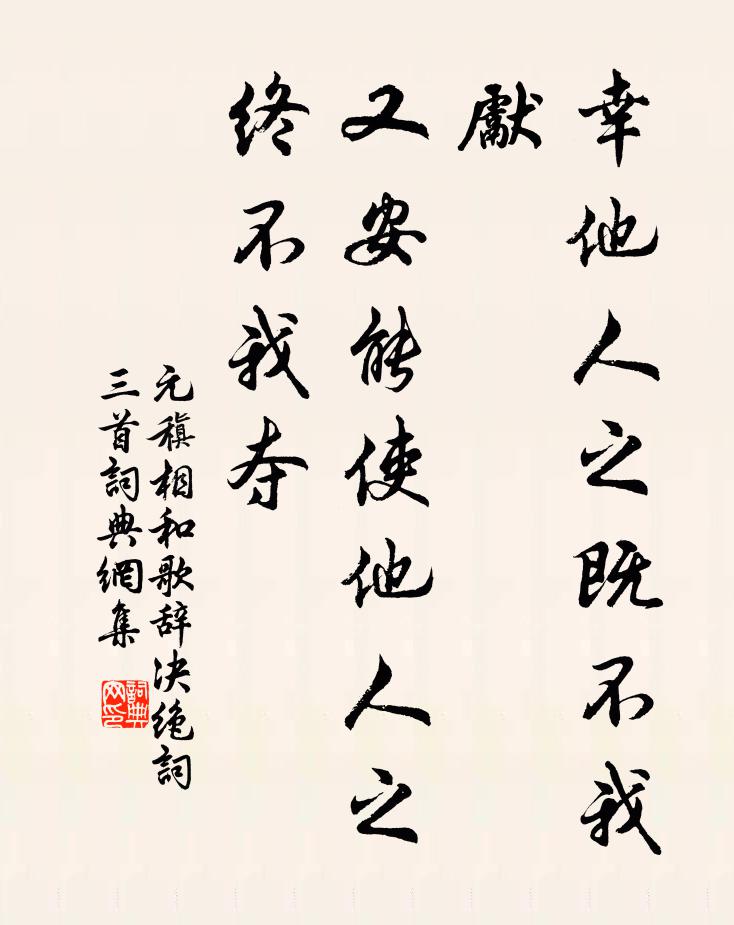 幸他人之既不我
獻
又安能使他人之
终不我夺
元稹相和歌辞决绝詞
三首詞典網集
詞典
网印